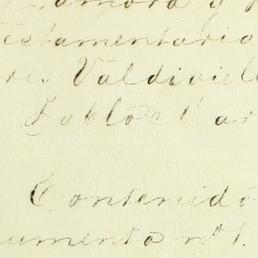 Zamora y
Testamentario
res Valdiviel
Pablo
Contenido
umento nº 1.